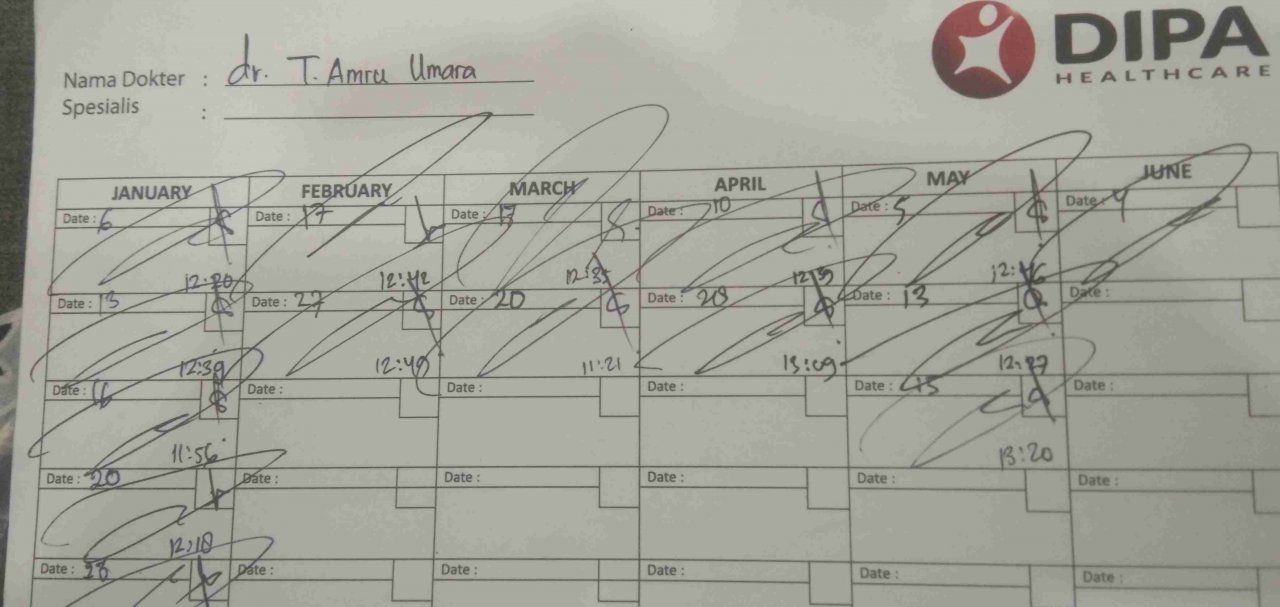 DIPA
HEALTHCARE
Nama Dokter : dr. T. Amru Umara
Spesialis :
JANUARY FEBRUARY MARCH APRIL MAY JUNE
Date : 6 Date : 17 Date : 13 Date : 10 Date : 5 Date : 4
12:20 12:42 12:35 12:15 12:46
Date : 13 Date : 27 Date : 20 Date : 28 Date : 13 Date :
12:39 12:49 11:21 13:09 12:27
Date : 16 Date : Date : Date : Date : 15 Date :
11:56 13:20
Date : 20 Date : Date : Date : Date : Date :
12:18
Date : 23 Date : Date : Date : Date : Date :